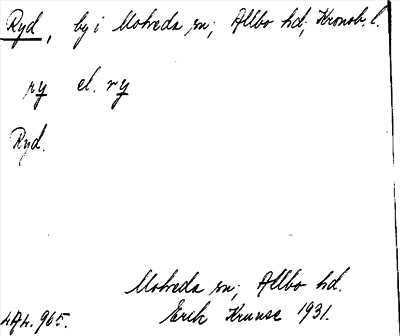 Ryd, by i Moheda sn; Allbo hd, Kronob. l.
ry el. ry
Ryd.
Moheda sn; Allbo hd.
Erik Kruuse 1931.